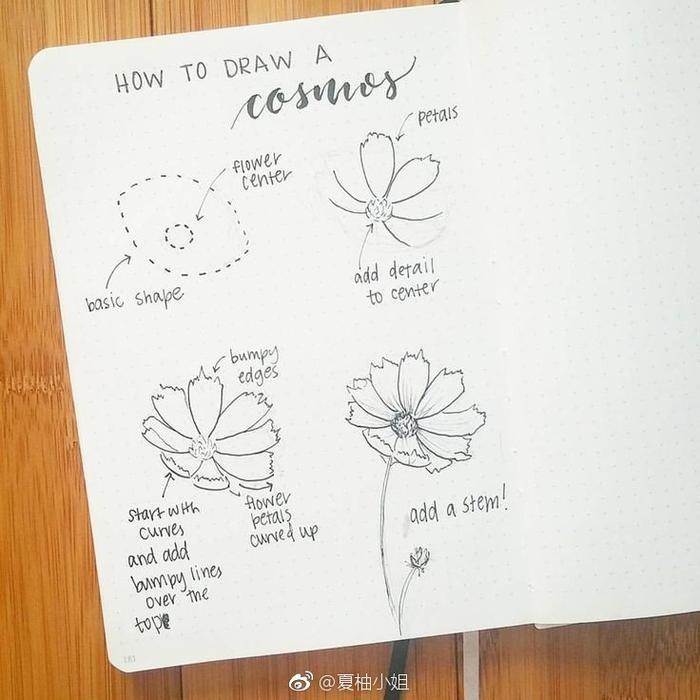 HOW TO DRAW A
cosmos
flower
center
basic shape
petals
add detail
to center
bumpy
edges
start with
curves
and add
bumpy lines
over the
top
flower
petals
curved up
add a stem!
181
@夏柚小姐